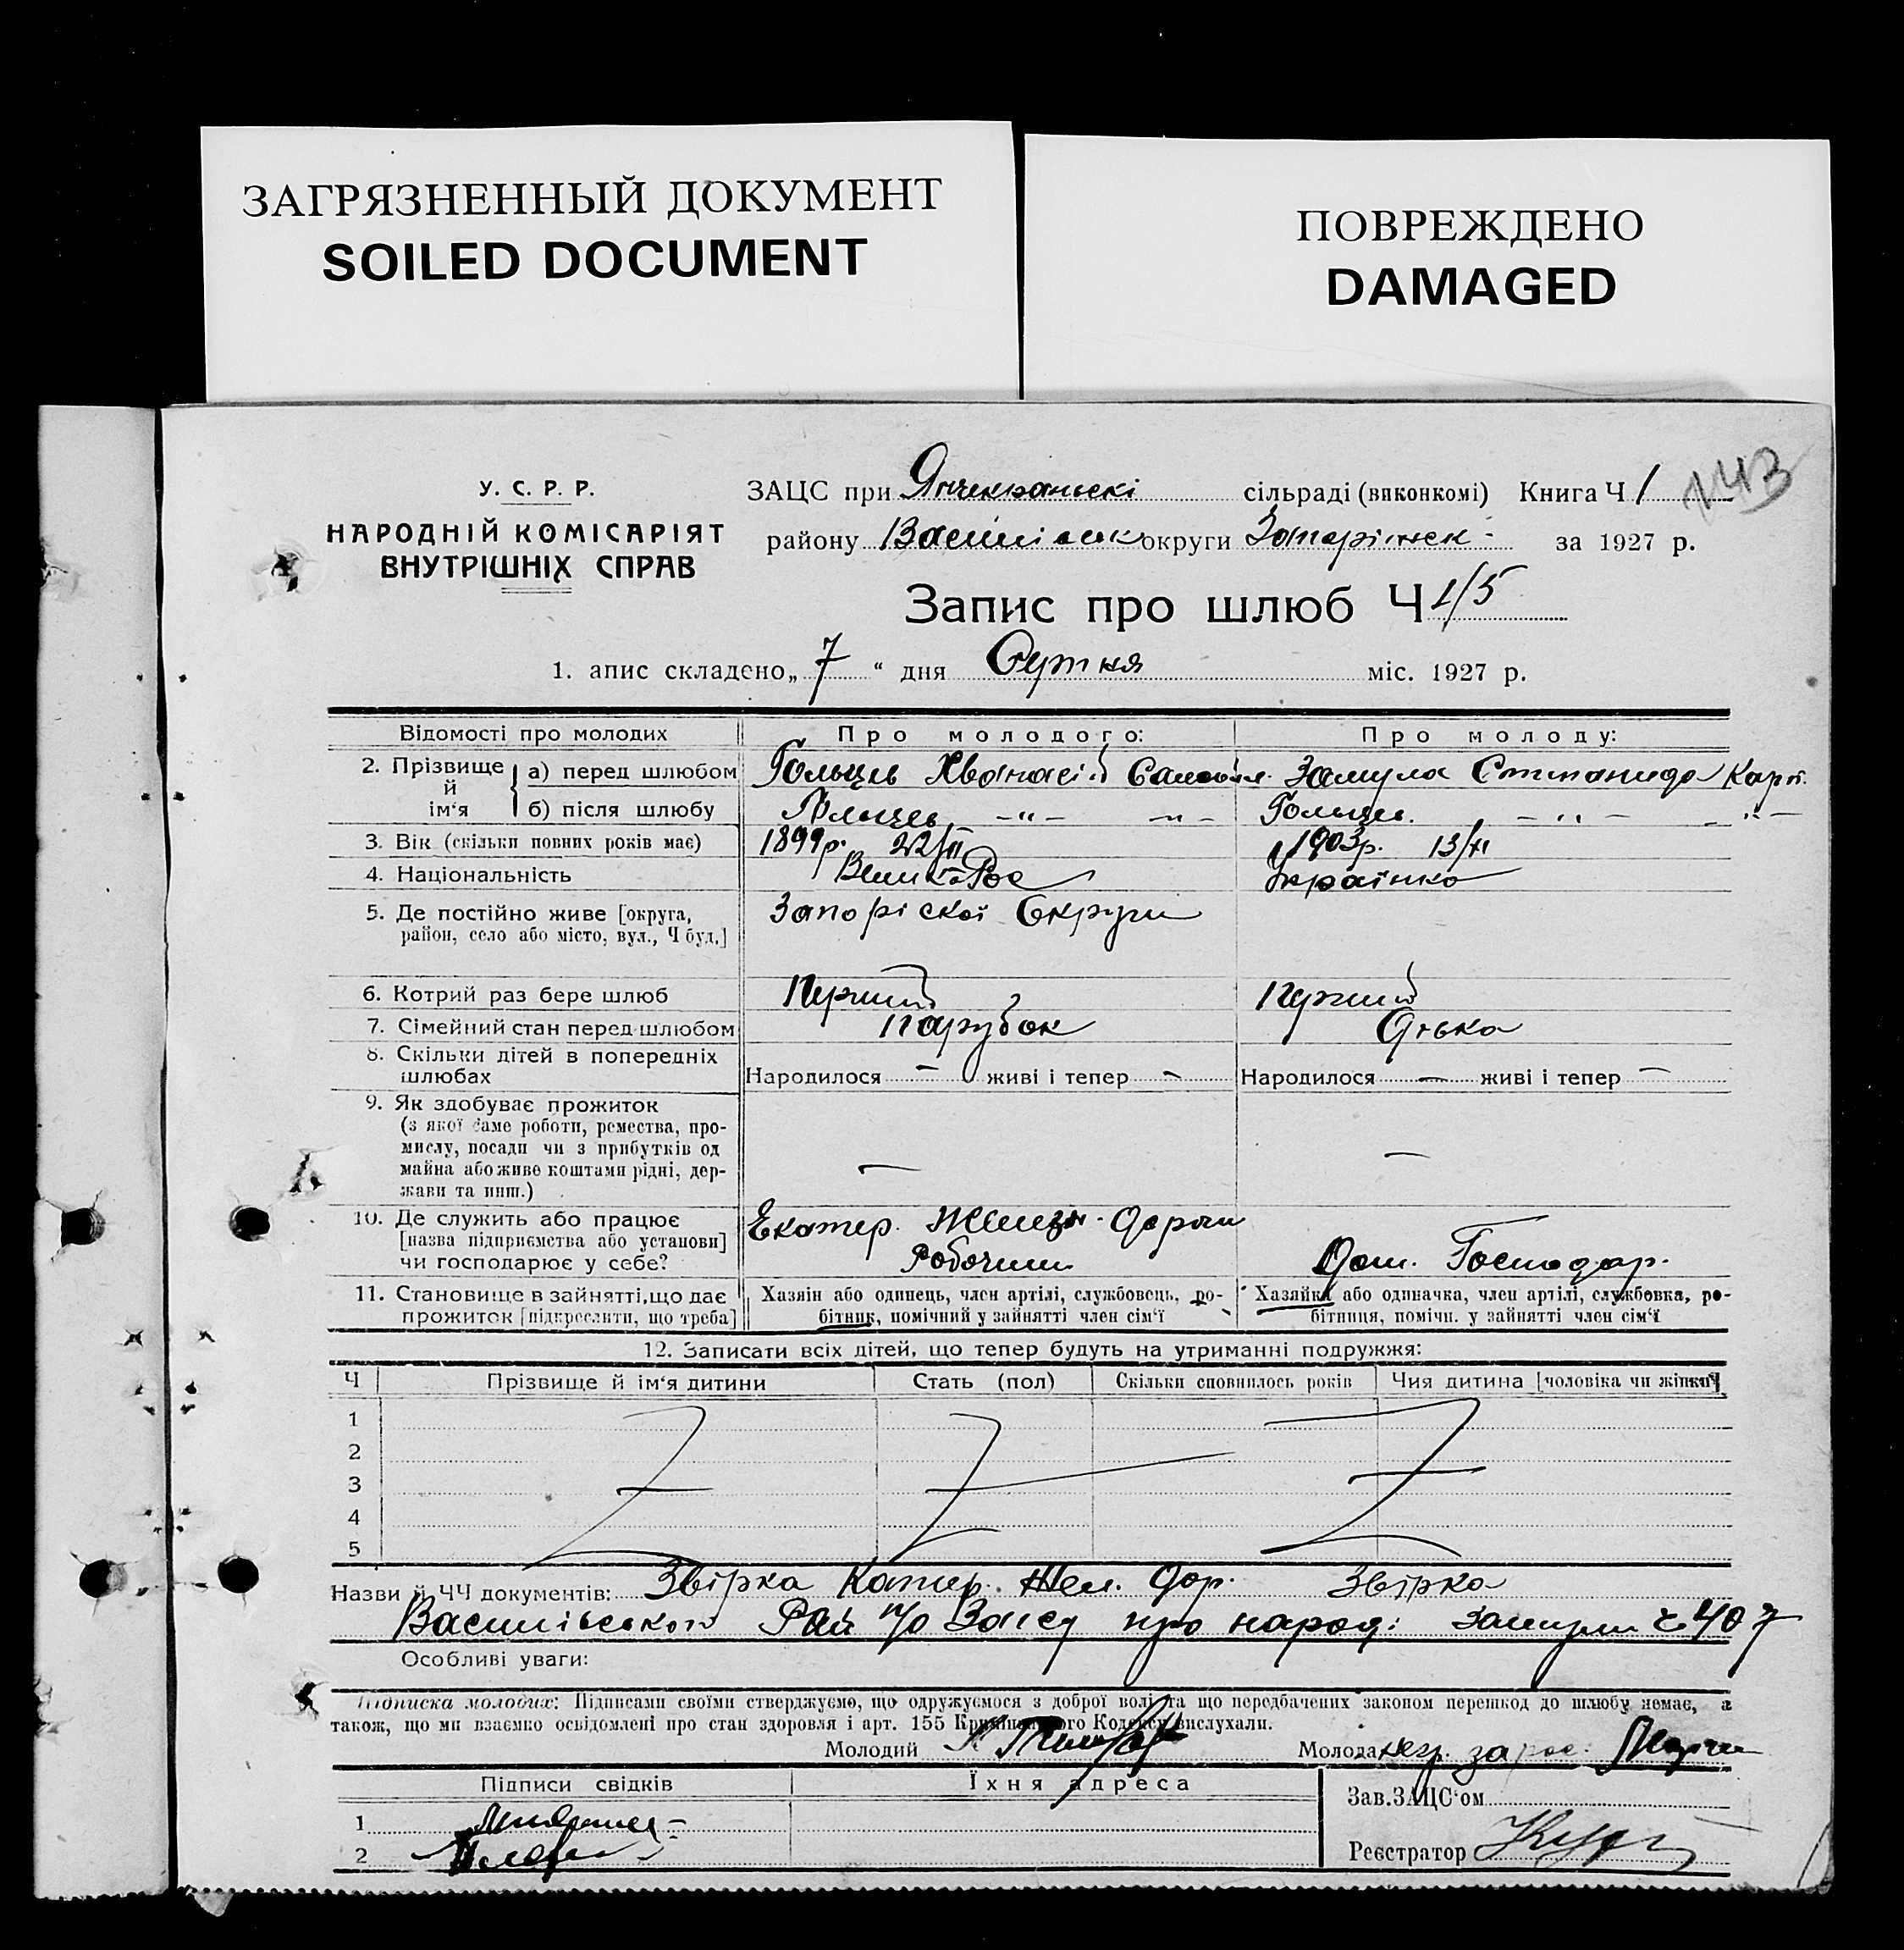 ЗАГРЯЗНЕННЫЙ ДОКУМЕНТ
SOILED DOCUMENT
ПОВРЕЖДЕНО
DAMAGED
143
У. С. Р. Р.
НАРОДНІЙ КОМІСАРІЯТ
ВНУТРІШНІХ СПРАВ
ЗАЦС при Янчекраньскі сільраді (виконкомі) Книга Ч 1
району округи за 1927 р.
Запис про шлюб Ч 1/5
1. апис складено „ 7 “ дня Сутня міс. 1927 р.
Відомості про молодих
Про молодого:
Про молоду:
2. Прізвище й ім‘я
а) перед шлюбом Гольцев Хванасій Самойл. Замула Степанида Карп.
б) після шлюбу Гольцев —"— —"— Гольцев. —"— —"—
3. Вік (скільки повних років має) 1899 р. 22/II 1903 р. 13/XI
4. Національність ВеликоРос Українка
5. Де постійно живе [округа, район, село або місто, вул., Ч буд.] Запоріскої Округи
6. Котрий раз бере шлюб Перший Перший
7. Сімейний стан перед шлюбом парубок Дівка
8. Скільки дітей в попередніх шлюбах Народилося — живі і тепер — Народилося — живі і тепер —
9. Як здобуває прожиток
(з якої саме роботи, ремества, про-
мислу, посади чи з прибутків од
майна або живе коштами рідні, дер-
жави та инш.) — —
10. Де служить або працює
[назва підприємства або установи]
чи господарює у себе?
Екатер. Желєзн. Дороги
Робочим
Дом. Господар.
11. Становище в зайнятті, що дає
прожиток [підкреслити, що треба]
Хазяін або одинець, член артілі, службовець, ро-
бітник, помічний у зайнятті член сім‘ї
Хазяйка або одиначка, член артілі, службовка, ро-
бітниця, помічн. у зайнятті член сім‘ї
12. Записати всіх дітей, що тепер будуть на утриманні подружжя:
Ч Прізвище й ім‘я дитини Стать (пол) Скільки сповнилось років Чия дитина [чоловіка чи жінки]
1
2
3
4
5
Назви й ЧЧ документів: Звірка Катер. Жел. Дор. Звірка
Василівського Рай про народ: Замули ч 407
Особливі уваги:
Підписка молодих: Підписами своїми стверджуємо, що одружуємося з доброї волі та що передбачених законом перешкод до шлюбу немає, а
також, що ми взаємно освідомлені про стан здоровля і арт. 155 Кримінального Кодексу вислухали.
Молодий Молода
Підписи свідків
Їхня адреса
Зав. ЗАЦС‘ом
1
2
Реєстратор